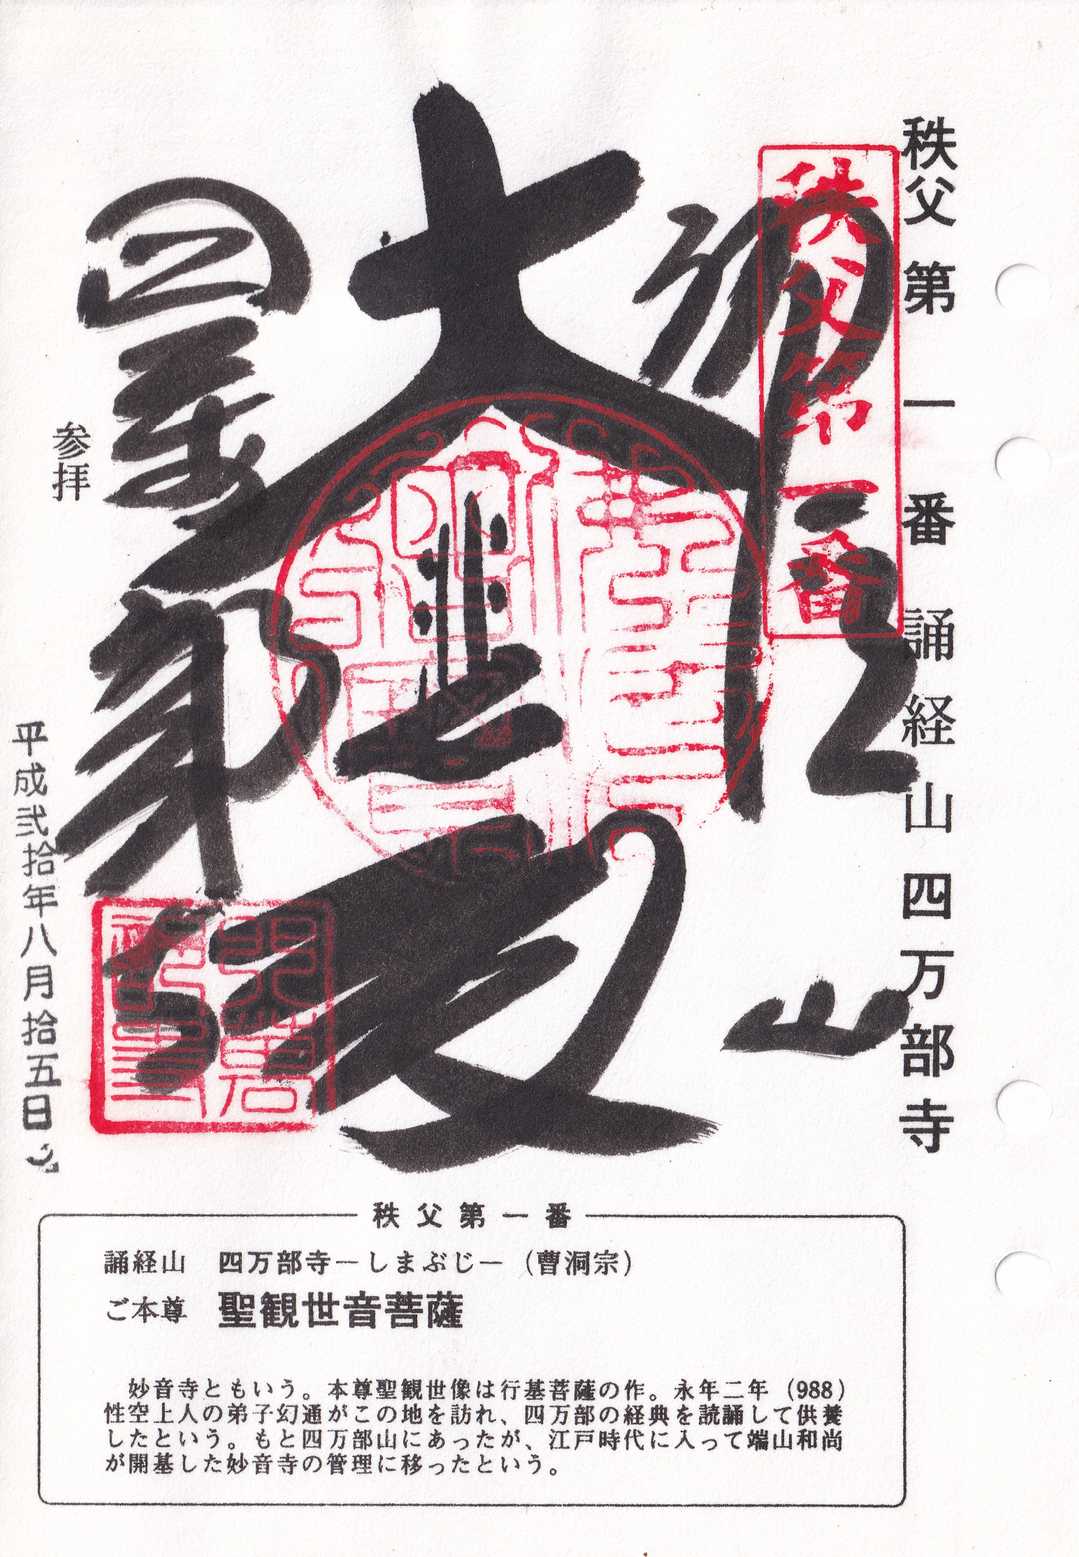 秩父第一番誦経山四万部寺
秩父第一番
誦経山
大悲殿
四萬部寺
参拝
平成弐拾年八月拾五日
秩父第一番
誦経山 四万部寺−しまぶじ−(曹洞宗)
ご本尊 聖観世音菩薩
妙音寺ともいう。本尊聖観世像は行基菩薩の作。永年二年(988)
性空上人の弟子幻通がこの地を訪れ、四万部の経典を読誦して供養
したという。もと四万部山にあったが、江戸時代に入って端山和尚
が開基した妙音寺の管理に移ったという。